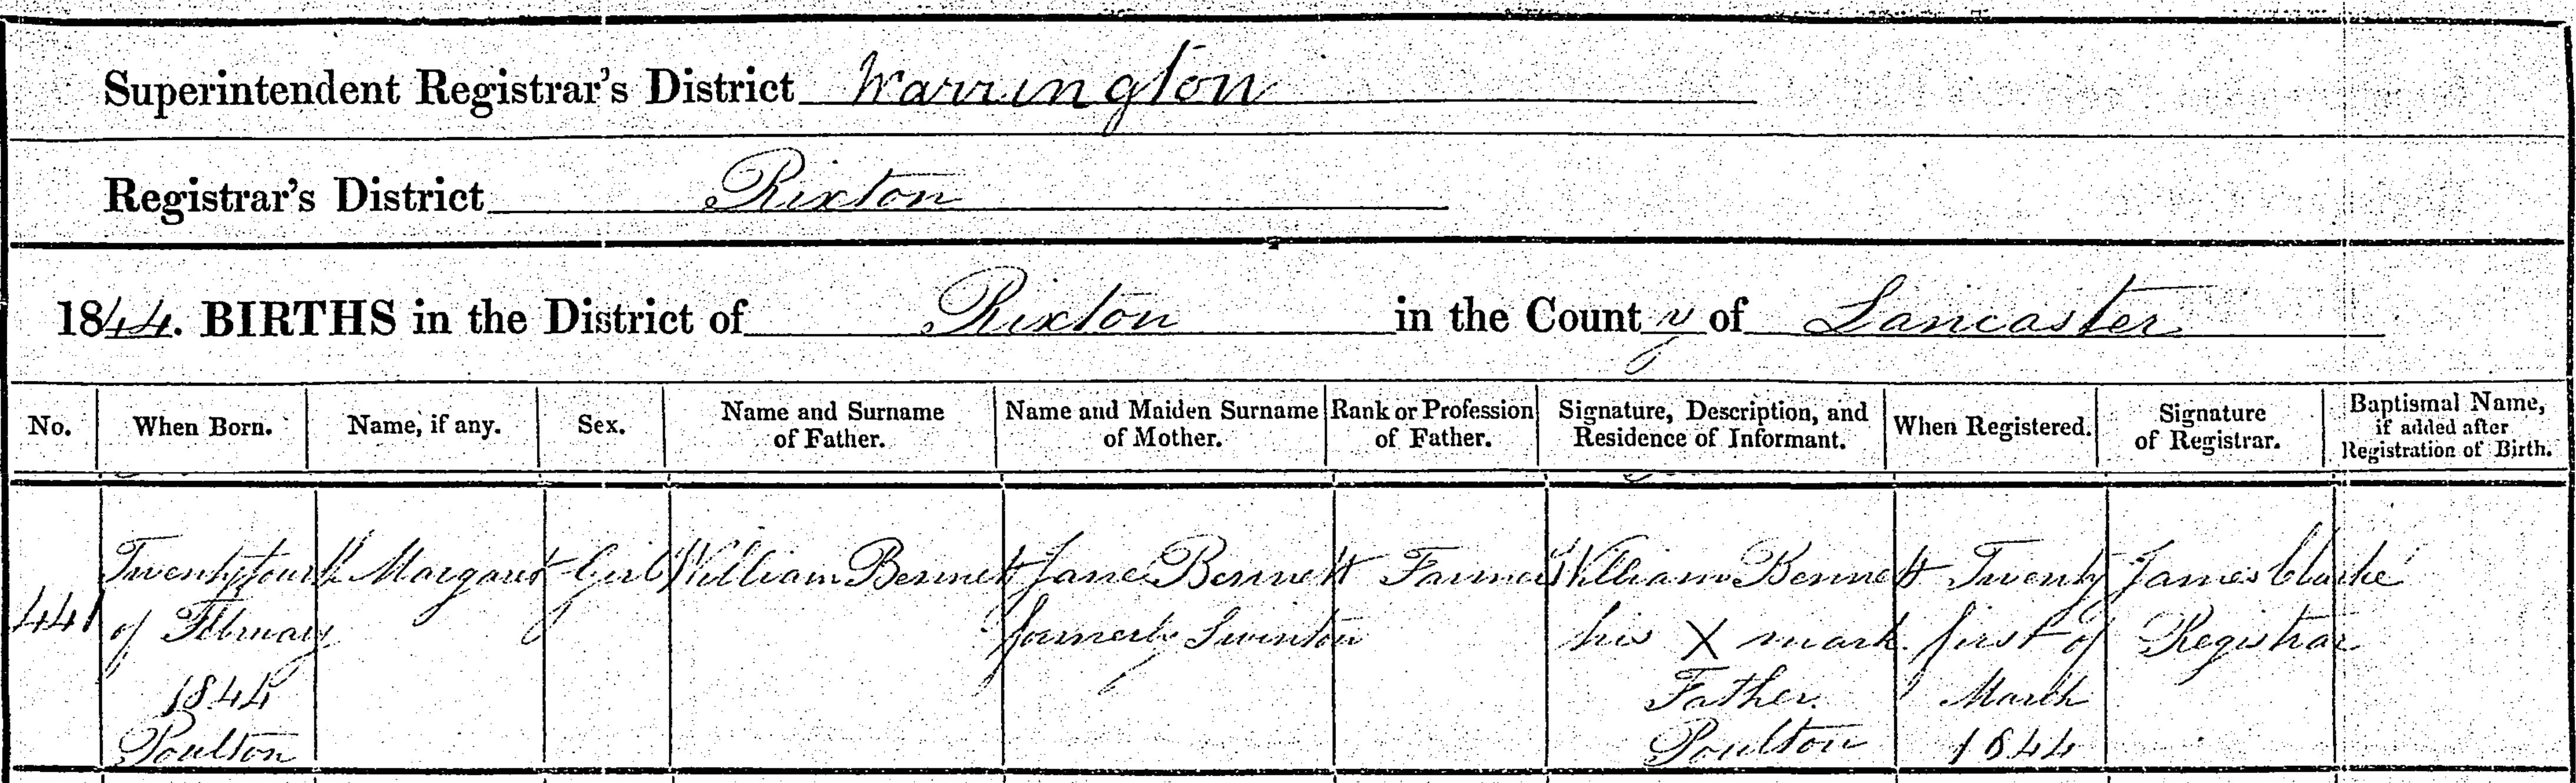 Superintendent Registrar's District Warrington
Registrar's District Rixton
1844. BIRTHS in the District of Rixton in the County of Lancaster
No.
When Born.
Name, if any.
Sex.
Name and Surname
of Father.
Name and Maiden Surname
of Mother.
Rank or Profession
of Father.
Signature, Description, and
Residence of Informant.
When Registered.
Signature
of Registrar.
Baptismal Name,
if added after
Registration of Birth.
441
Twenty fourth
of February
1844
Poulton
Margaret
Girl
William Bennett
Jane Bennett
formerly Swinton
Farmer
William Bennett
his X mark
Father
Poulton
Twenty
first of
March
1844
James Clarke
Registrar